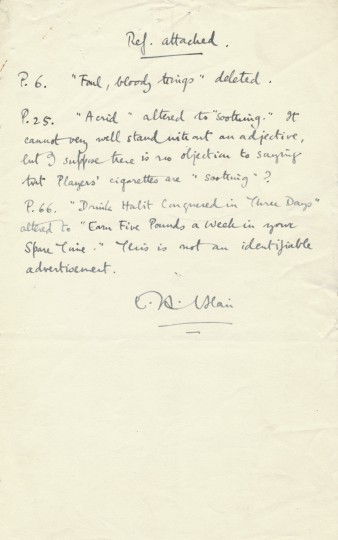 Ref. attached.
P. 6. "Foul, bloody things" deleted.
P. 25. "Acrid" altered to "soothing." It
cannot very well stand without an adjective,
but I suppose there is no objection to saying
that Players' cigarettes are "soothing"?
P. 66. "Drink Habit Conquered in Three Days"
altered to "Earn Five Pounds a Week in your
Spare Time." This is not an identifiable
advertisement.
E. A. Blair